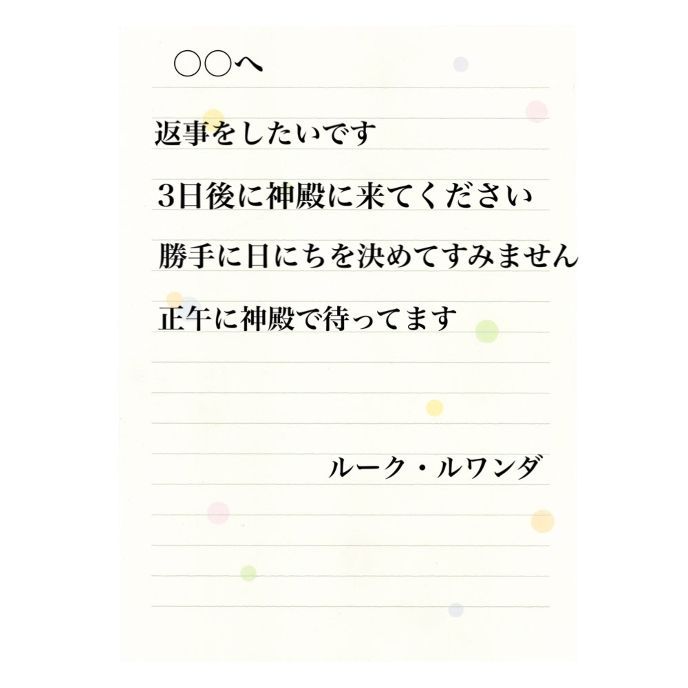 ○○へ
返事をしたいです
3日後に神殿に来てください
勝手に日にちを決めてすみません
正午に神殿で待ってます
ルーク・ルワンダ